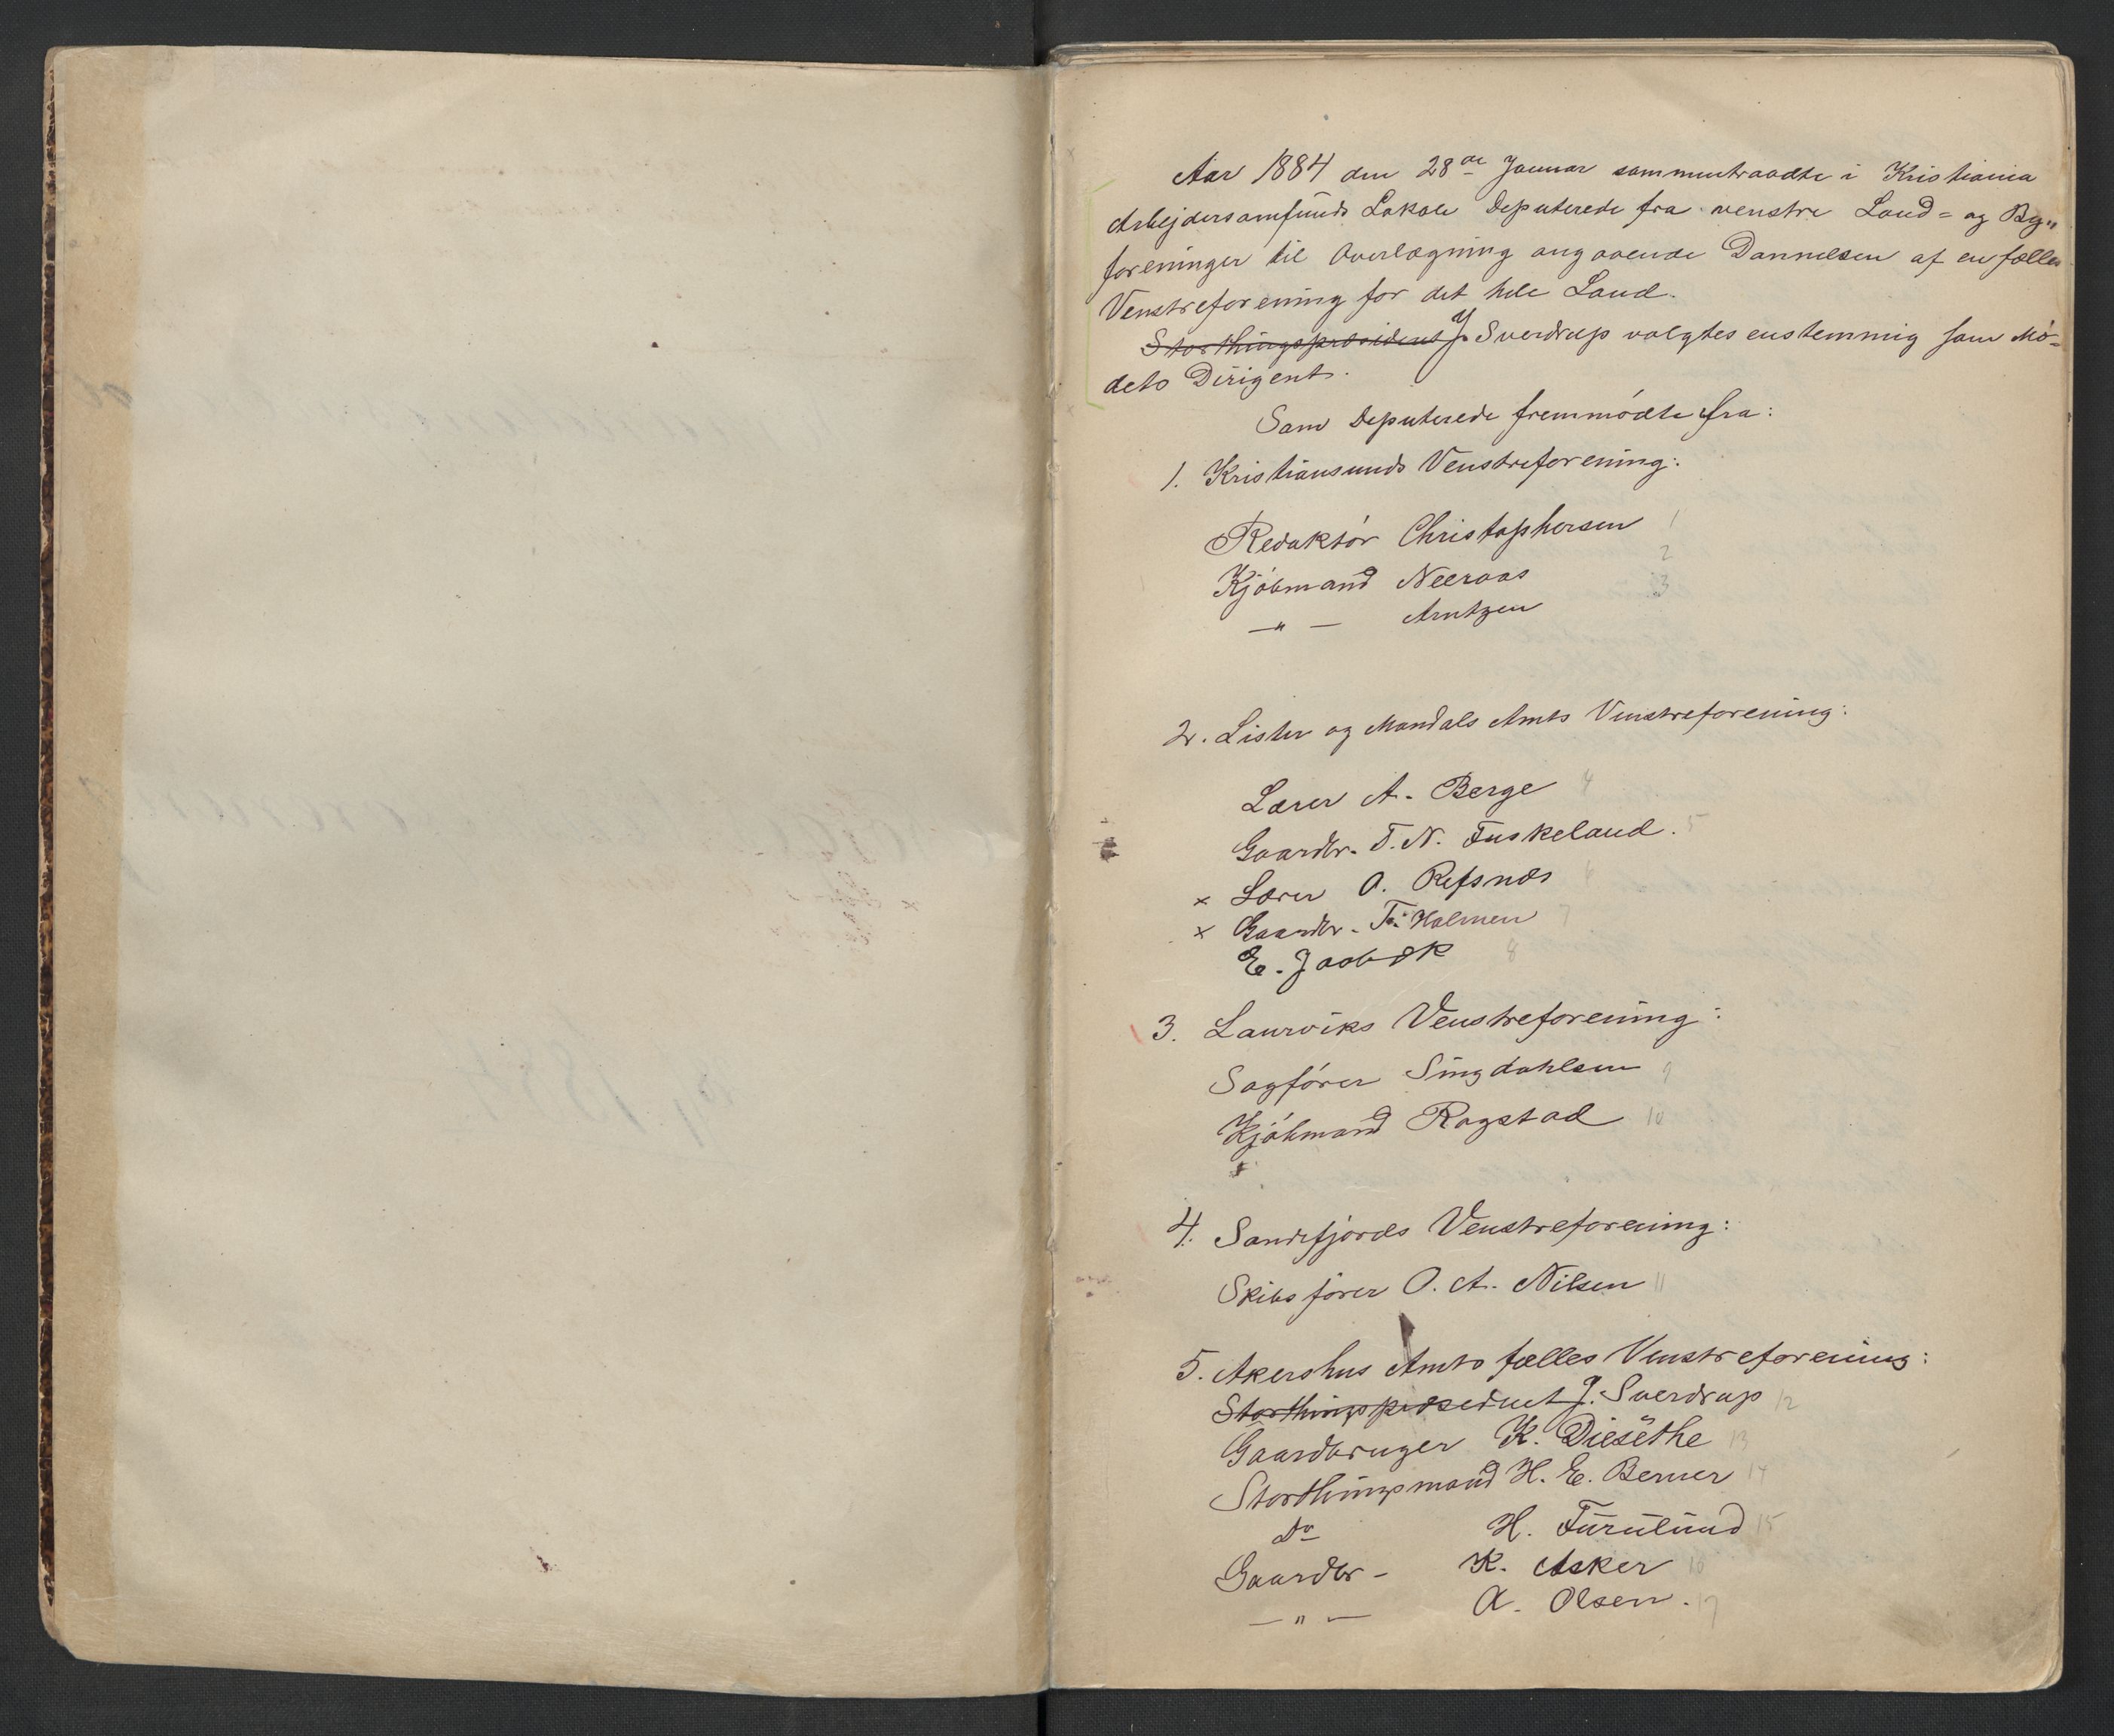 Aar 1884 den 28de Januar sammentraadte i Kristiania
Arbejdersamfunds Lokale Deputerede fra venstre Land- og By-
foreninger til Overlægning angaaende Dannelsen af en fælles
Venstreforening for det hele Land.
Storthingspræsident J. Sverdrup valgtes enstemmig som Mö-
dets Dirigent.
Som Deputerede fremmödte fra:
1. Kristiansunds Venstreforening:
Redaktör Christophersen 1
Kjöbmand Neeraas 2
—"— Arntzen 3
2. Lister og Mandals Amts Venstreforening:
Lærer A. Berge 4
Gaardbr. T. N. Fuskeland. 5
x Lærer O. Refsnæs 6
x Gaardbr. T. Holmen 7
E. Jaabæk 8
3. Laurviks Venstreforening:
Sagförer Singdahlsen 9
Kjöbmand Rogstad 10
4. Sandefjords Venstreforening:
Skibsförer O. A. Nilsen 11
5. Akershus Amts fælles Venstreforening:
Storthingspræsident J. Sverdrup 12
Gaardbruger K. Diesethe 13
Storthingsmand H. E. Berner 14
Do H. Furulund 15
Gaardbr- K. Asker 16
—"— A. Olsen. 17